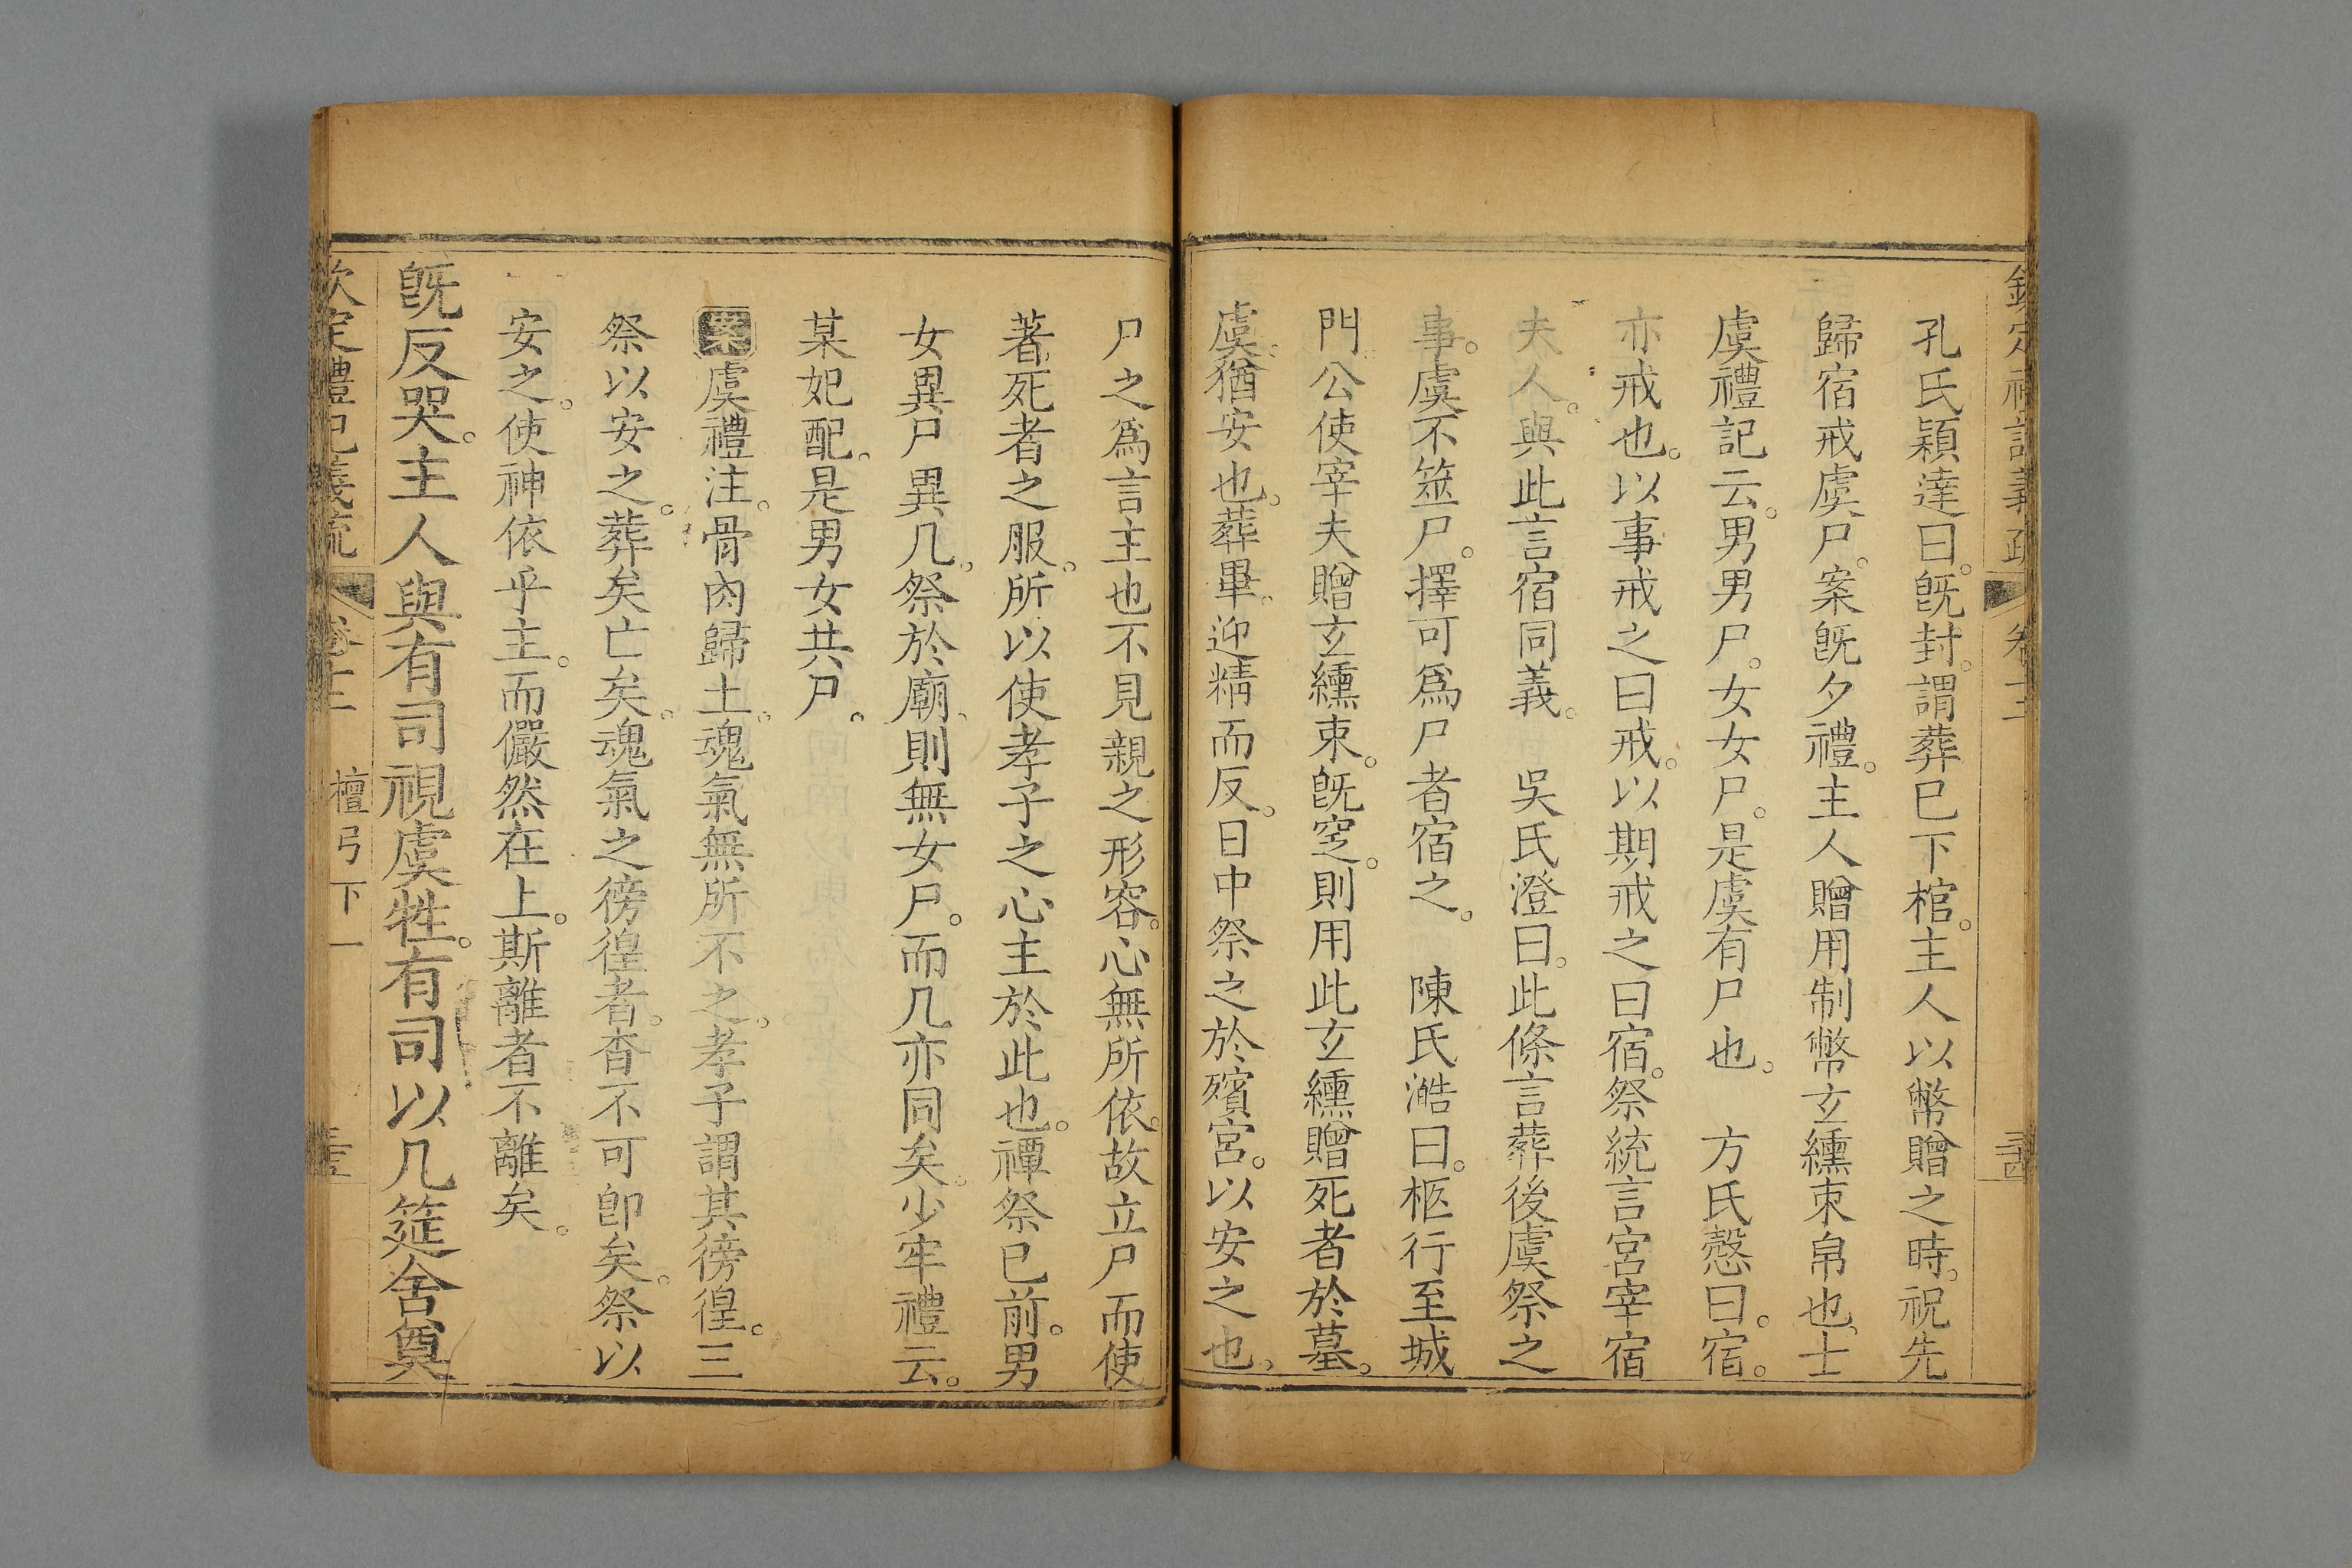 欽定禮記義疏 卷十二 三四
孔氏穎達曰。旣封。謂葬已下棺。主人以幣贈之時。祝先
歸宿戒虞尸。案旣夕禮。主人贈用制幣玄纁束帛也。士
虞禮記云。男男尸。女女尸。是虞有尸也。 方氏慤曰。宿。
亦戒也。以事戒之曰戒。以期戒之曰宿。祭統言宮宰宿
夫人。與此言宿同義。 吳氏澄曰。此條言葬後虞祭之
事。虞不筮尸。擇可爲尸者宿之。 陳氏澔曰。柩行至城
門公使宰夫贈玄纁束。旣窆。則用此玄纁贈死者於墓。
虞。猶安也。葬畢。迎精而反。日中祭之於殯宮。以安之也。
尸之爲言主也不見親之形容。心無所依。故立尸而使
著死者之服。所以使孝子之心主於此也。禫祭已前。男
女異尸異几。祭於廟。則無女尸。而几亦同矣。少牢禮云。
某妃配。是男女共尸。
案虞禮注。骨肉歸土。魂氣無所不之。孝子謂其徬徨。三
祭以安之。葬矣亡矣。魂氣之徬徨者。杳不可卽矣。祭以
安之。使神依乎主。而儼然在上。斯離者不離矣。
旣反哭。主人與有司視虞牲。有司以几筵舍奠
欽定禮記義疏 卷十二 檀弓下一 三五